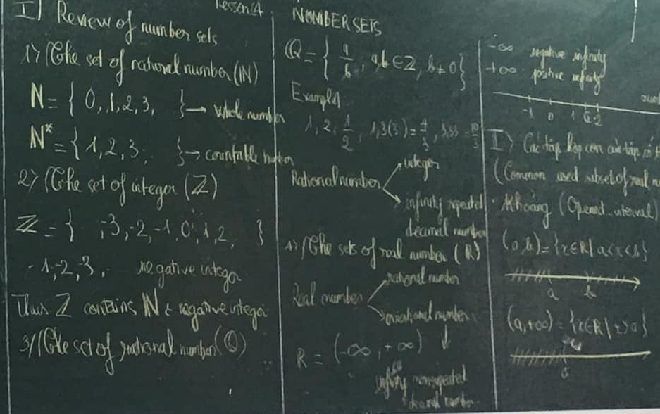 Lesson 4 NUMBER SETS
I) Review of number sets
1) The set of natural number (N)
N = { 0, 1, 2, 3, } → whole number
N* = { 1, 2, 3, } → countable number
2) The set of integer (Z)
Z = { , -3, -2, -1, 0, 1, 2, }
-1, -2, -3, negative integer
Thus Z contains N & negative integer
3) The set of rational number (Q)
Q = { a/b, a,b ∈ Z, b ≠ 0 }
Example
1, 2, 1/2, 1,3(3) = 4/3, 3,33 = 10/3
Rational number
integer
infinity repeated
decimal number
4) The sets of real number (R)
Real number
rational number
irrational number
R = (-∞, +∞)
infinity nonrepeated
decimal number
-∞ negative infinity
+∞ positive infinity
-1 0 1 2
I) Các tập hợp con của tập số
(Common used subset of real
Khoảng (Opened interval)
(a,b) = {x∈R | a<x<b}
a b
(a,+∞) = {x∈R | x>a}
a